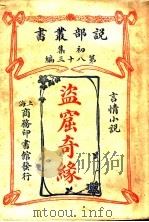 說部叢書
初集
第八十三編
言情小說
盜窟奇緣
上海商務印書館發行